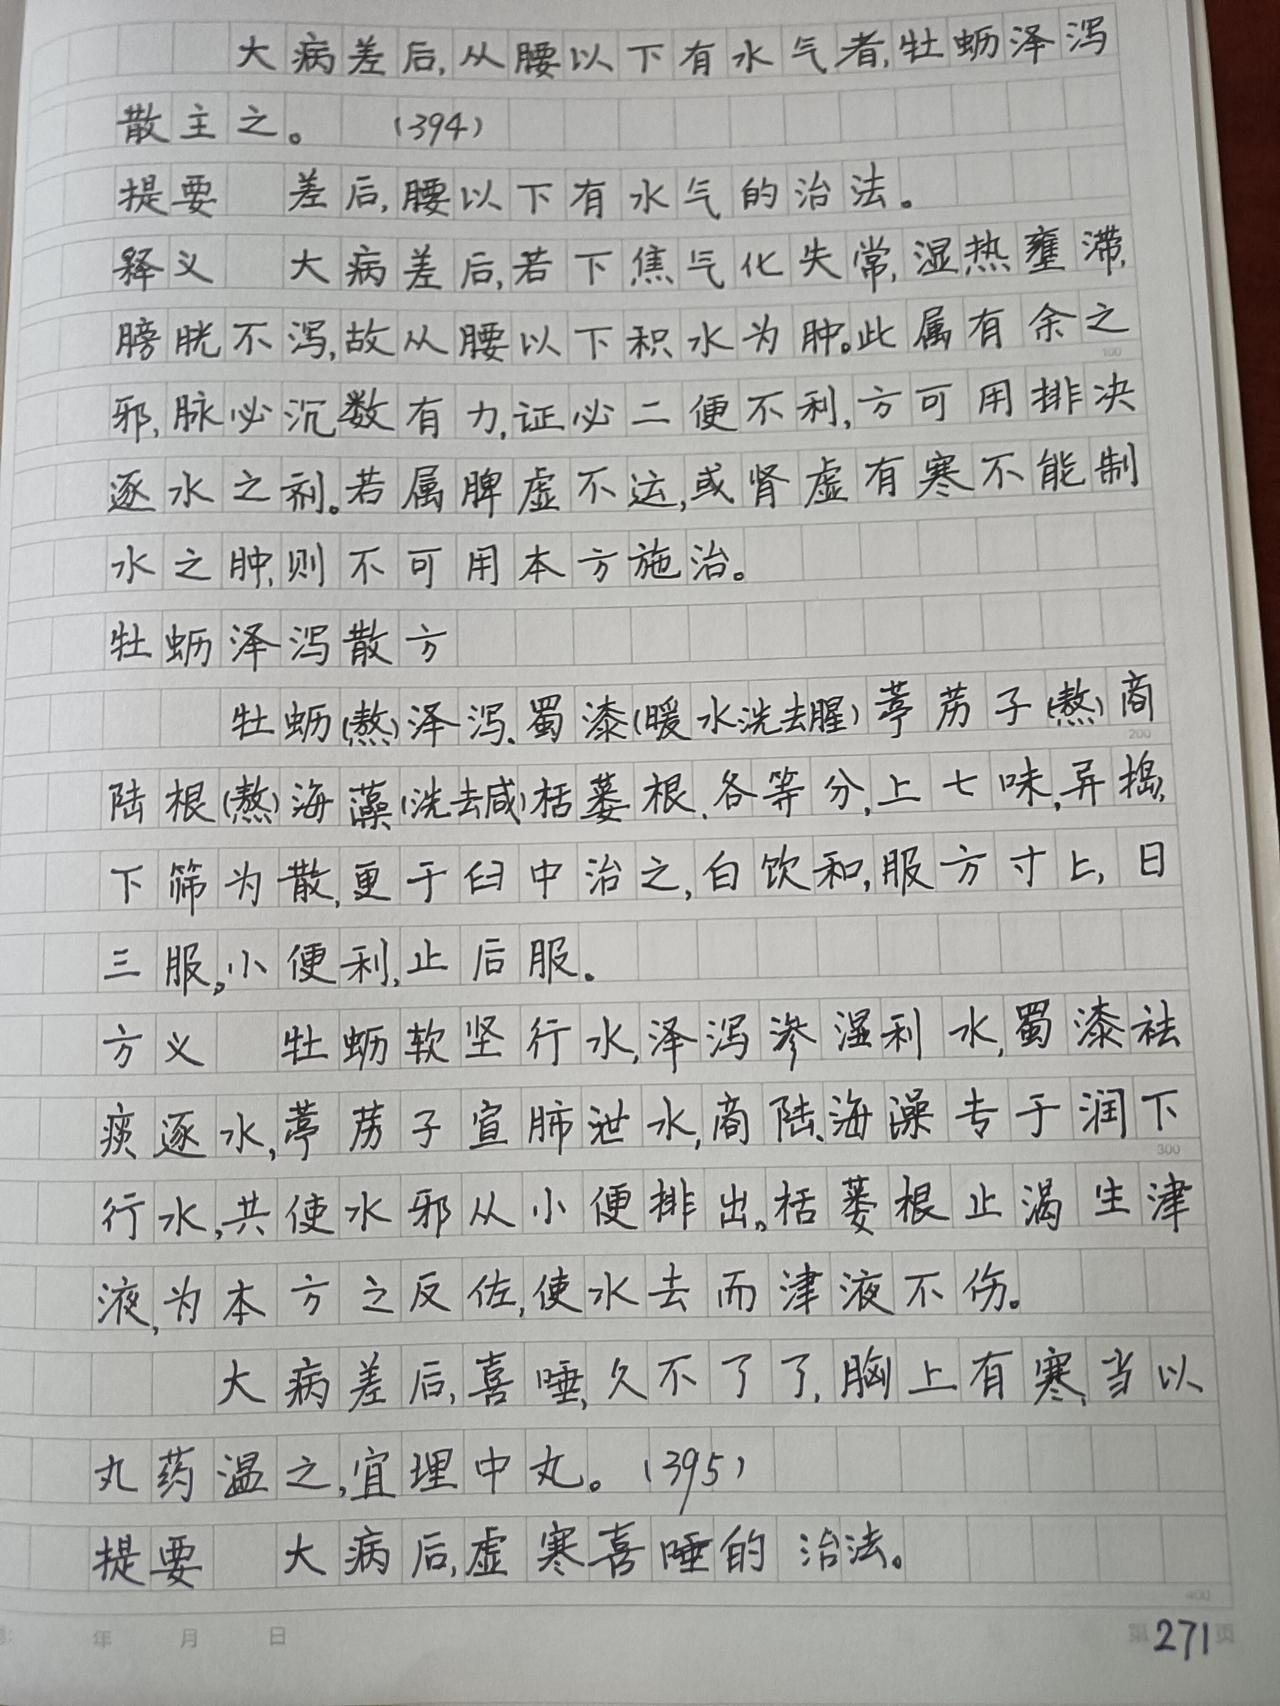 大病差后,从腰以下有水气者,牡蛎泽泻
散主之。 (394)
提要 差后,腰以下有水气的治法。
释义 大病差后,若下焦气化失常,湿热壅滞,
膀胱不泻,故从腰以下积水为肿。此属有余之
100
邪,脉必沉数有力,证必二便不利,方可用排决
逐水之剂。若属脾虚不运,或肾虚有寒不能制
水之肿,则不可用本方施治。
牡蛎泽泻散方
牡蛎(熬)泽泻、蜀漆(暖水洗去腥)葶苈子(熬)商
200
陆根(熬)海藻(洗去咸)栝蒌根、各等分,上七味,异捣,
下筛为散,更于臼中治之,白饮和,服方寸匕,日
三服。小便利,止后服。
方义 牡蛎软坚行水,泽泻渗湿利水,蜀漆祛
痰逐水,葶苈子宣肺泄水,商陆、海藻专于润下
300
行水,共使水邪从小便排出。栝蒌根止渴生津
液,为本方之反佐,使水去而津液不伤。
大病差后,喜唾,久不了了,胸上有寒,当以
丸药温之,宜理中丸。(395)
提要 大病后,虚寒喜唾的治法。
400
年 月 日 第271页